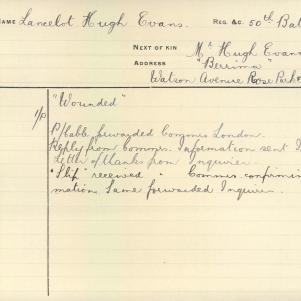 NAME Lancelot Hugh Evans. REG. &c. 50th Bat
NEXT OF KIN Mr Hugh Evans
ADDRESS "Berrima"
Watson Avenue Rose Park
"Wounded"
P/Cable forwarded Commrs London.
Reply from Commrs. Information sent
Letter of thanks from inquirer.
"Slip" received " Commrs. confirm
mation. Same forwarded Inquirer.